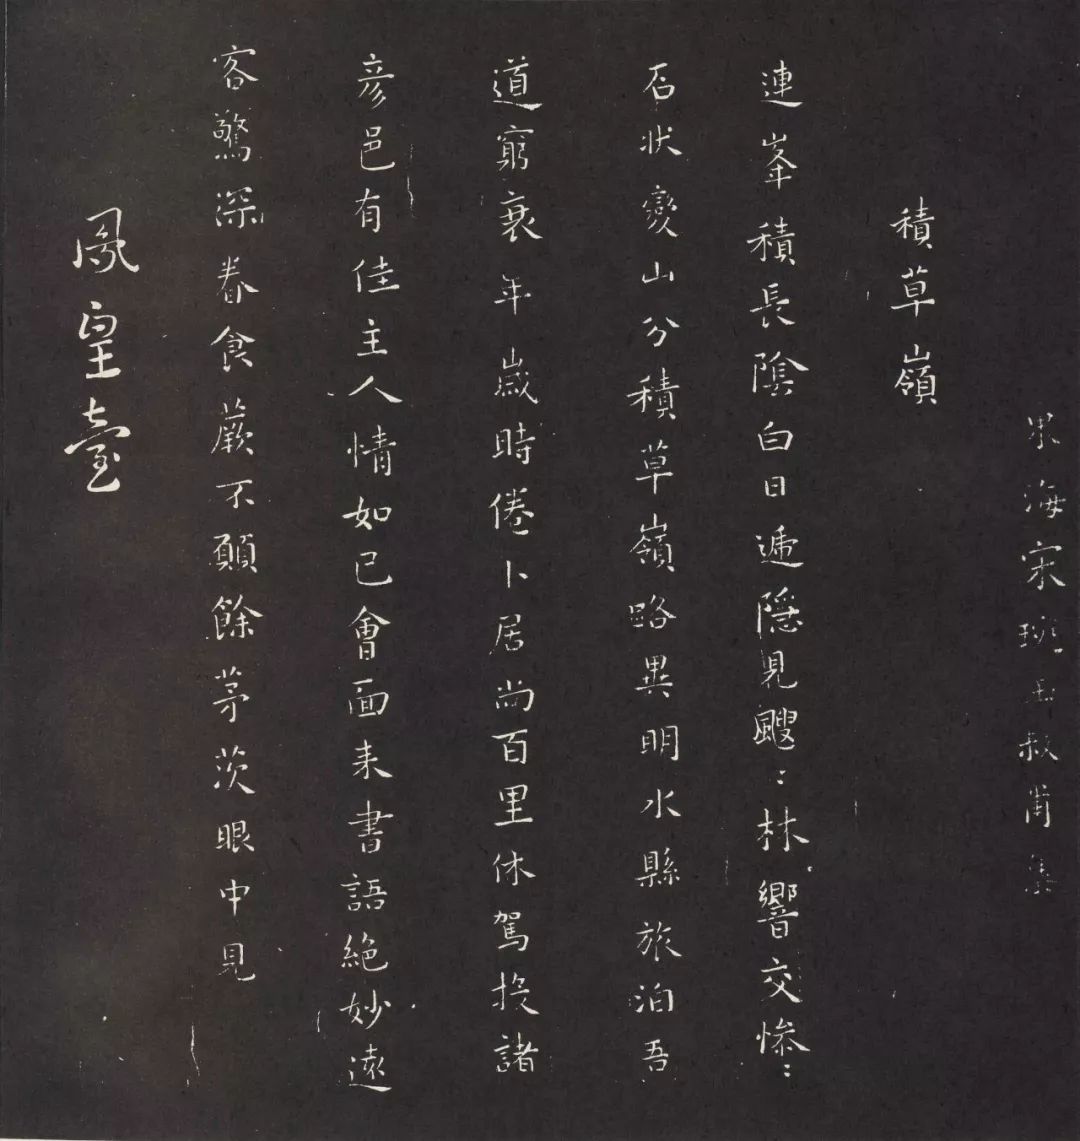 東海宋琬玉叔甫集
積草嶺
連峯積長陰白日遞隱見颼〻林響交慘〻
石狀變山分積草嶺路異明水縣旅泊吾
道窮衰年歲時倦卜居尚百里休駕投諸
彦邑有佳主人情如已會面来書語絕妙遠
客驚深眷食蕨不願餘茅茨眼中見
鳳皇臺